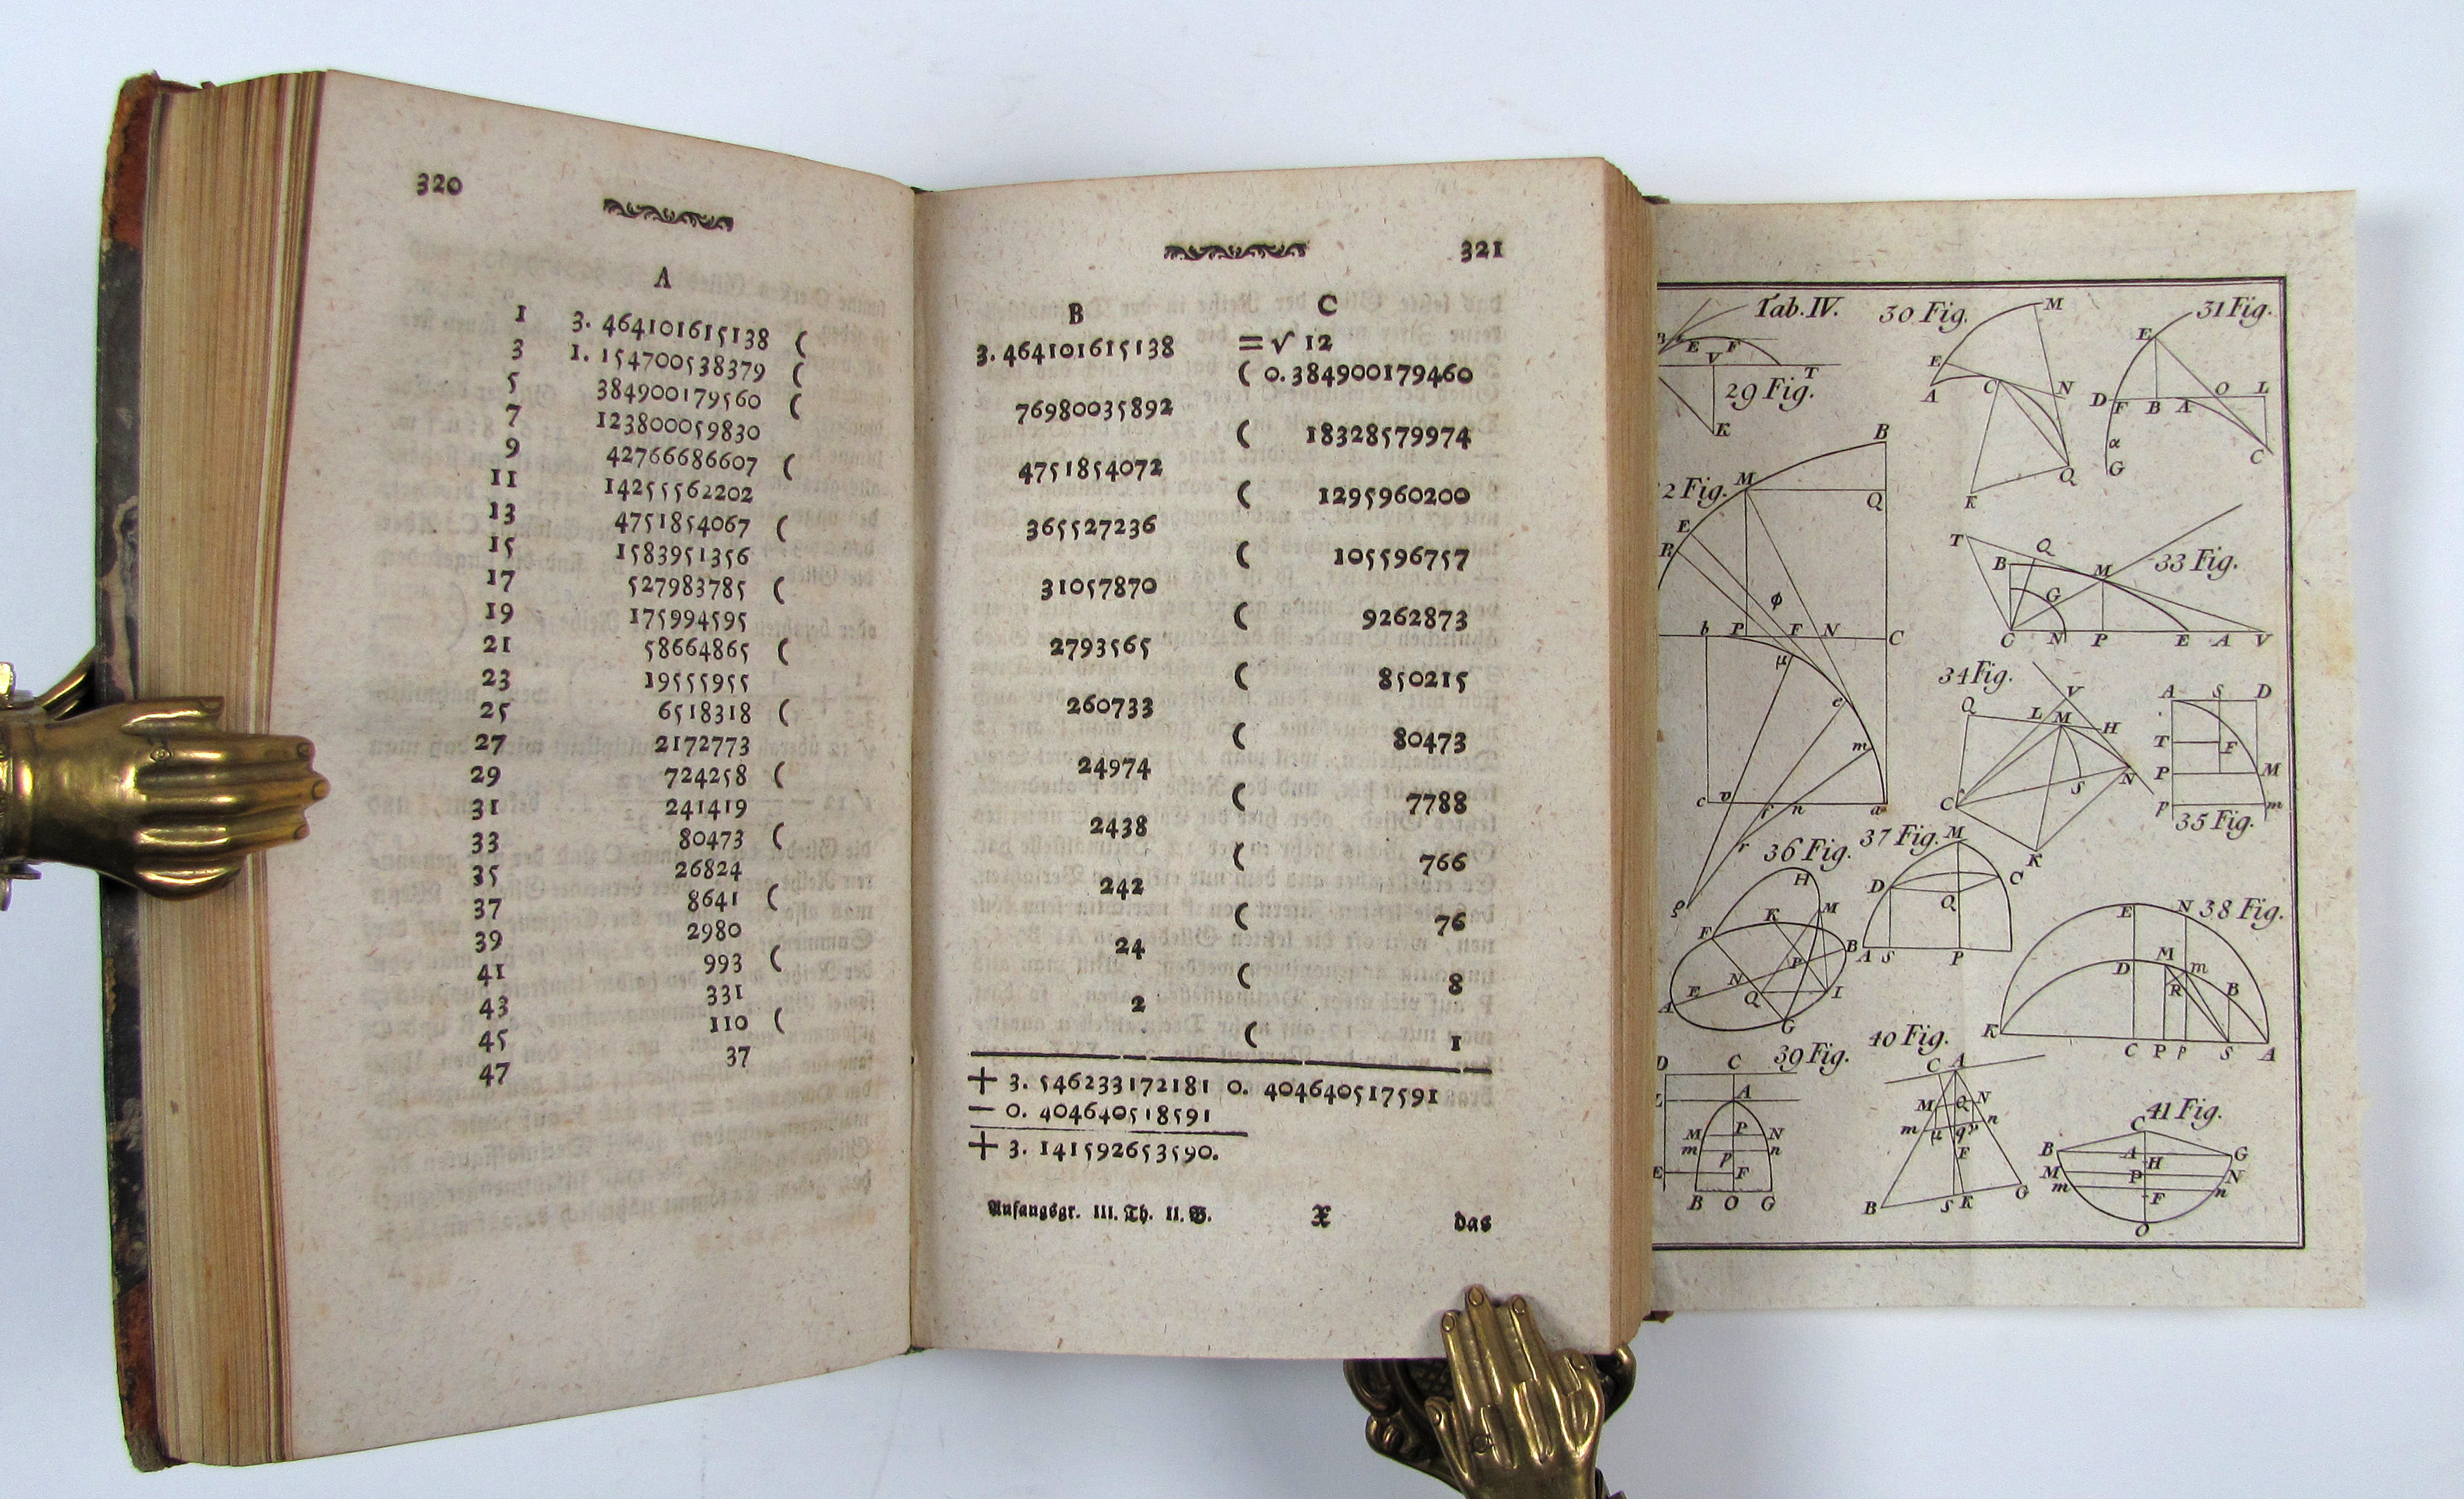 320
A
1 3. 464101615138 (
3 1. 154700538379 (
5 384900179560 (
7 123800059830
9 42766686607 (
11 14255562202
13 4751854067 (
15 1583951356
17 527983785 (
19 175994595
21 58664865 (
23 19555955
25 6518318 (
27 2172773
29 724258 (
31 241419
33 80473 (
35 26824
37 8641 (
39 2980
41 993 (
43 331
45 110 (
47 37
321
B C
3. 464101615138 = √ 12
( 0. 384900179460
76980035892
( 18328579974
4751854072
( 1295960200
365527236
( 105596757
31057870
( 9262873
2793565
( 850215
260733
( 80473
24974
( 7788
2438
( 766
242
( 76
24
( 8
2
( 1
+ 3. 546233172181 0. 404640517591
− 0. 404640518591
+ 3. 141592653590.
Anfangsgr. III. Th. II. B. X das
Tab. IV. 30 Fig. M 31 Fig.
B E F V T E E
29 Fig. A C N D F B A O L
K α G C
B K Q
2 Fig. M Q
E R T B Q M 33 Fig.
φ G
b P F N C C N P E A V
μ 34 Fig. V A S D
e Q L M H T F
m S N P M
c v r n a C p m
r 36 Fig. 37 Fig. M K 35 Fig.
H D C
Q
F K M B A S P E N 38 Fig.
P M m
A E N Q I D R B
G K C P p S A
D C 39 Fig. 40 Fig. C A
L A M Q N 41 Fig.
M P N m μ q n C
m p n F B A H G
E F M P N
m F n
B O G B S K G O